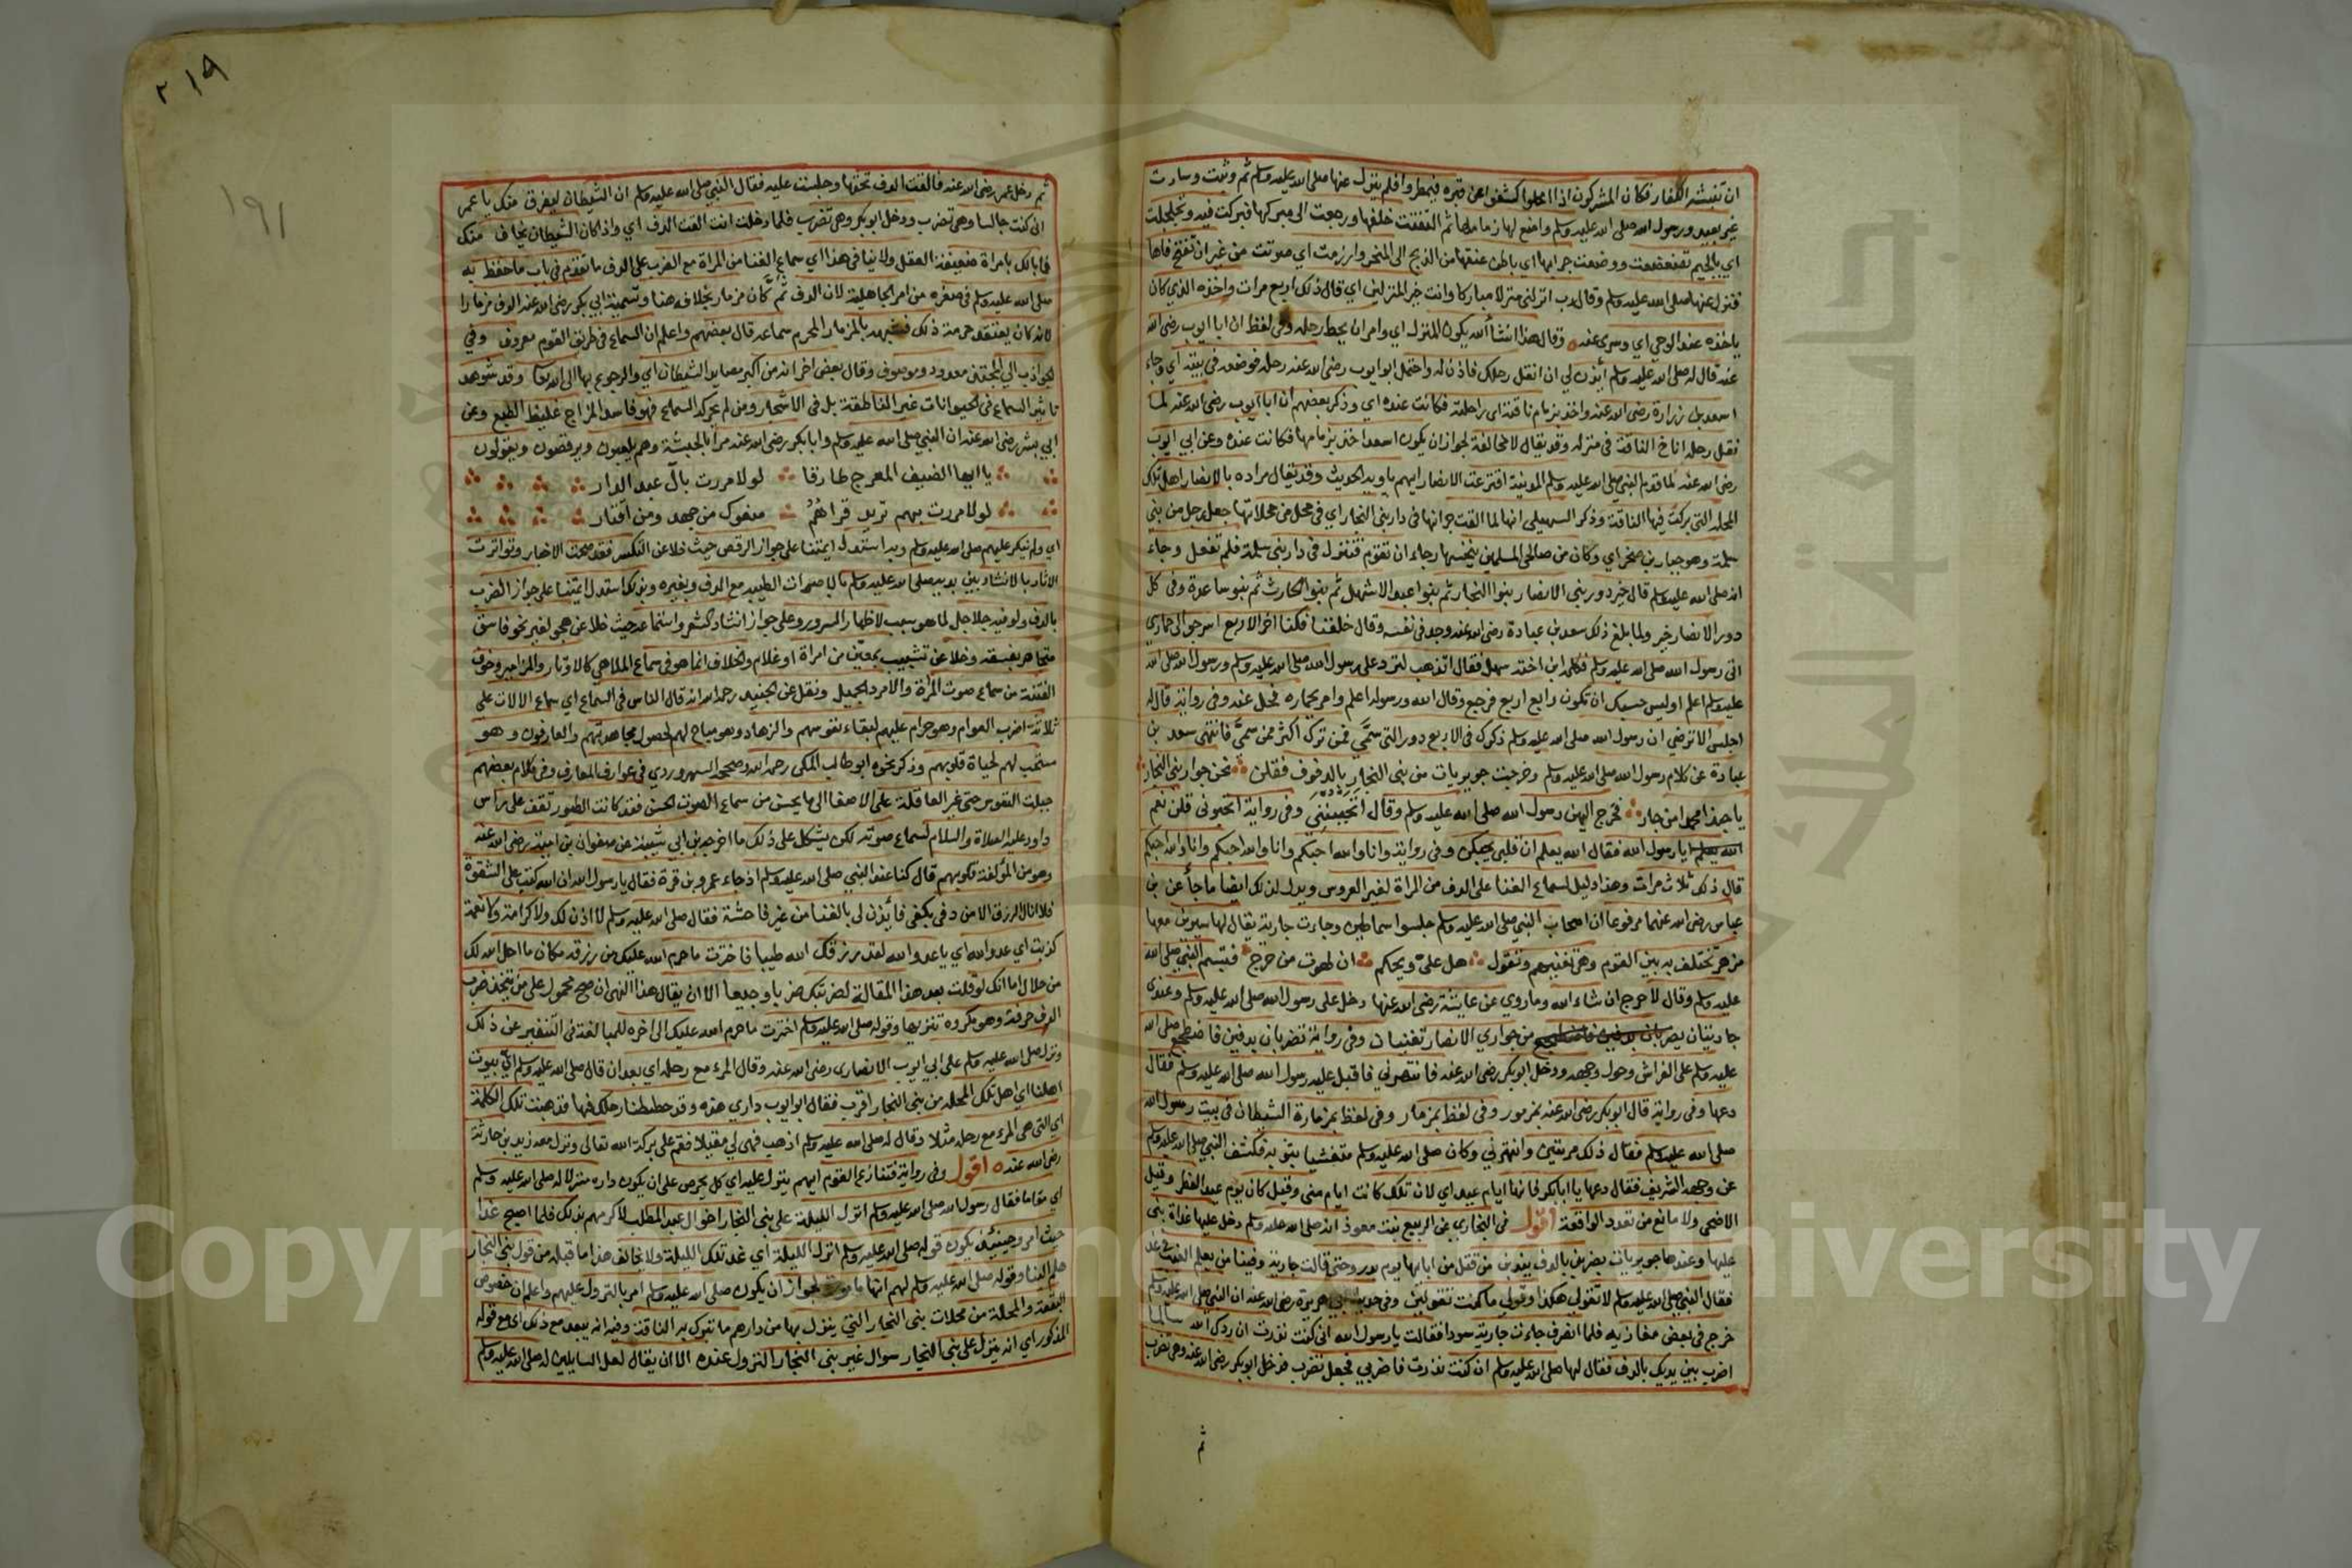 ان تنبشه الكفار فكان المشركون اذا امحلوا كشفوا عن قبره فيمطروا فلم ينزل عنها صلى الله عليه وسلم ثم وثبت وسارت
غير بعيد ورسول الله صلى الله عليه وسلم واضع لها زمامها ثم التفتت خلفها ورجعت الى مبركها فبركت فيه وتجلجلت
اي بالجيم تضعضعت ووضعت جرانها اي باطن عنقها من الذبح الى المنحر وارزمت اي صوتت من غير ان تفتح فاها
فنزل عنها صلى الله عليه وسلم وقال رب انزلني منزلا مباركا وانت خير المنزلين اي قال ذلك اربع مرات واخذه الذي كان
ياخذه عند الوحي اي وسري عنه وقال هذا انشأ الله يكون المنزل اي وامر ان يحط رحله وفي لفظ ان ابا ايوب رضي الله
عنه قال له صلى الله عليه وسلم أيذن لي ان انقل رحلك فاذن له واحتمل ابو ايوب رضي الله عنه رحله فوضعه في بيته اي وجاء
اسعد بن زرارة رضي الله عنه واخذ بزمام ناقته اي راحلته فكانت عنده اي وذكر بعضهم ان ابا ايوب رضي الله عنه لما
نقل رحله اناخ الناقة في منزله وقد يقال لا مخالفة لجواز ان يكون اسعد اخذ بزمامها فكانت عنده وعن ابي ايوب
رضي الله عنه لما قدم النبي صلى الله عليه وسلم المدينة اقترعت الانصار ايهم ياويه الحديث وقد يقال مراده بالانصار اهل تلك
المحلة التي بركت فيها الناقة وذكر السهيلي انها لما القت جرانها في دار بني النجار اي في محل من محلاتها جعل رجل من بني
سلمة وهو جبار بن صخر اي وكان من صالحي المسلمين ينخسها رجاء ان تقوم فتنزل في دار بني سلمة فلم تفعل وجاء
انه صلى الله عليه وسلم قال خير دور بني الانصار بنوا النجار ثم بنوا عبد الاشهل ثم بنوا الحارث ثم بنو ساعدة وفي كل
دور الانصار خير ولما بلغ ذلك سعد بن عبادة رضي الله عنه وجد في نفسه وقال خلفنا فكنا اخر الاربع اسرجوا لي حماري
اتي رسول الله صلى الله عليه وسلم فكلمه ابن اخته سهل فقال اتذهب لترد على رسول الله صلى الله عليه وسلم ورسول الله صلى الله
عليه وسلم اعلم اوليس حسبك ان تكون رابع اربع فرجع وقال الله ورسوله اعلم وامر بحماره فحل عنه وفي رواية قال له
اجلس الا ترضى ان رسول الله صلى الله عليه وسلم ذكرك في الاربع دور التي سمى فمن ترك اكثر ممن سمى فانتهى سعد بن
عبادة عن كلام رسول الله صلى الله عليه وسلم وخرجت جويريات من بني النجار بالدفوف فقلن نحن جوار بني النجار
يا حبذا محمد من جار فخرج اليهن رسول الله صلى الله عليه وسلم وقال اتحببنني وفي رواية اتحبوني قلن نعم
يا رسول الله فقال الله يعلم ان قلبي يحبكن وفي رواية وانا والله احبكم وانا والله احبكم وانا والله احبكم
قال ذلك ثلاث مرات وهذا دليل لسماع الغنا على الدف من المراة لغير العروس ويدل لذلك ايضا ما جاء عن بن
عباس رضي الله عنهما مرفوعا ان اصحاب النبي صلى الله عليه وسلم جلسوا سماطين وجاءت جارية يقال لها سيرين معها
مزهر تختلف به بين القوم وهي تغنيهم وتقول هل علي ويحكم ان لهوت من حرج فتبسم النبي صلى الله
عليه وسلم وقال لا حرج ان شاء الله وما روي عن عايشة رضي الله عنها دخل على رسول الله صلى الله عليه وسلم وعندي
جاريتان من جواري الانصار تغنيان وفي رواية تضربان بدفين فاضطجع صلى الله
عليه وسلم على الفراش وحول وجهه ودخل ابو بكر رضي الله عنه فانتهرني فاقبل عليه رسول الله صلى الله عليه وسلم فقال
دعها وفي رواية قال ابو بكر رضي الله عنه بمزمور وفي لفظ بمزمار وفي لفظ بمزمارة الشيطان في بيت رسول الله
صلى الله عليه وسلم فقال ذلك مرتين وانتهرني وكان صلى الله عليه وسلم متغشيا بثوبه فكشف النبي صلى الله عليه وسلم
عن وجهه الشريف فقال دعها يا ابا بكر فانها ايام عيد اي لان تلك كانت ايام منى وقيل كان يوم عيد الفطر وقيل
الاضحى ولا مانع من تعدد الواقعة اقول في البخاري عن الربيع بنت معوذ انه صلى الله عليه وسلم دخل عليها غداة بنى
عليها وعندها جويريات يضربن بالدف يندبن من قتل من ابائها يوم بدر وحتى قالت جارية وفينا من يعلم الغيب في غد
فقال النبي صلى الله عليه وسلم لا تقولي هكذا وقولي ما كنت تقولين وفي حديث ابي هريرة رضي الله عنه ان النبي صلى الله عليه وسلم
خرج في بعض مغازيه فلما انصرف جاءت جارية سودا فقالت يا رسول الله اني كنت نذرت ان ردك الله سالما
اضرب بين يديك بالدف فقال لها صلى الله عليه وسلم ان كنت نذرت فاضربي فجعل تضرب فدخل ابو بكر رضي الله عنه وهي تضرب
ثم
٢١٩
١٩١
ثم دخل عمر رضي الله عنه فالقت الدف تحتها وجلست عليه فقال النبي صلى الله عليه وسلم ان الشيطان ليفرق منك يا عمر
اني كنت جالسا وهي تضرب ودخل ابو بكر وهي تضرب فلما دخلت انت القت الدف اي واذا كان الشيطان يخاف منك
فما بالك بامراة ضعيفة العقل ولا ينافي هذا اي سماع الغنا من المراة مع الضرب على الدف ما تقدم في باب ما حفظ به
صلى الله عليه وسلم في صغره من امر الجاهلية لان الدف ثم كان مزمار بخلافه هنا وتسمية ابي بكر رضي الله عنه الدف مزمارا
لانه كان يعتقد حرمة ذلك فشبهه بالمزمار المحرم سماعه قال بعضهم واعلم ان السماع في طريق القوم معروف وفي
الجواذب الى المحبة معدود وموصوف وقال بعض اخر انه من اكبر مصايد الشيطان اي والرجوع بها الى الله تعالى وقد شوهد
تاثير السماع في الحيوانات غير الناطقة بل في الاشجار ومن لم يحركه السماع فهو فاسد المزاج غليظ الطبع وعن
ابي بشر رضي الله عنه ان النبي صلى الله عليه وسلم وابا بكر رضي الله عنه مرا بالحبشة وهم يلعبون ويرقصون ويقولون
يا ايها الضيف المعرج طارقا لولا مررت بآل عبد الدار
لولا مررت بهم تريد قراهم منعوك من جهد ومن اقتار
اي ولم ينكر عليهم صلى الله عليه وسلم وبه استدل ايمتنا على جواز الرقص حيث خلا عن التكسر فقد صحت الاخبار وتواترت
الاثار بالانشاد بين يديه صلى الله عليه وسلم بالاصوات الطيبة مع الدف وبغيره وبذلك استدل ايمتنا على جواز الضرب
بالدف ولو فيه جلاجل لما هو سبب لاظهار السرور وعلى جواز انشاد الشعر واستماعه حيث خلا عن هجو لغير نحو فاسق
متجاهر بفسقه وخلا عن تشبيب بمعين من امراة او غلام والخلاف انما هو في سماع الملاهي كالاوتار والمزامير وخوف
الفتنة من سماع صوت المراة والامرد الجميل ونقل عن الجنيد رحمه الله انه قال الناس في السماع اي سماع الالات على
ثلاثة اضرب العوام وهو حرام عليهم لبقاء نفوسهم والزهاد وهو مباح لهم لحصول مجاهدتهم والعارفون وهو
مستحب لهم لحياة قلوبهم وذكر نحوه ابو طالب المكي رحمه الله وصححه السهروردي في عوارف المعارف وفي كلام بعضهم
جبلت النفوس حتى غير العاقلة على الاصغا الى ما يحسن من سماع الصوت الحسن فقد كانت الطيور تقف على راس
داود عليه الصلاة والسلام لسماع صوته لكن يشكل على ذلك ما اخرجه بن ابي شيبة عن صفوان بن امية رضي الله عنه
وهو من المؤلفة قلوبهم قال كنا عند النبي صلى الله عليه وسلم اذ جاء عمرو بن قرة فقال يا رسول الله ان الله كتب علي الشقوة
فلا انال الرزق الا من دفي بكفي فأيذن لي بالغنا من غير فاحشة فقال صلى الله عليه وسلم لا اذن لك ولا كرامة ولا نعمة
كذبت اي عدو الله اي يا عدو الله لقد رزقك الله طيبا فاخترت ما حرم الله عليك من رزقه مكان ما احل الله لك
من حلال اما انك لو قلت بعد هذا المقالة لضربتك ضربا وجيعا الا ان يقال هذا النهي ان صح محمول على من يتخذ ضرب
الدف حرفة وهو مكروه تنزيها وقوله صلى الله عليه وسلم اخترت ما حرم الله عليك الى اخره للمبالغة في التنفير عن ذلك
ونزل صلى الله عليه وسلم على ابي ايوب الانصاري رضي الله عنه وقال المرء مع رحله اي بعد ان قال صلى الله عليه وسلم اي بيوت
اهلنا اي اهل تلك المحلة من بني النجار اقرب فقال ابو ايوب داري هذه وقد حططنا رحلك فيها فذهبت تلك الكلمة
اي التي هي المرء مع رحله مثلا وقال له صلى الله عليه وسلم اذهب فهيئ لي مقيلا فقم على بركة الله تعالى ونزل معه زيد بن حارثة
رضي الله عنه اقول وفي رواية فتنازع القوم ايهم ينزل عليه اي كل يحرص على ان يكون داره منزلا له صلى الله عليه وسلم
اي مقاما فقال رسول الله صلى الله عليه وسلم انزل الليلة على بني النجار اخوال عبد المطلب لاكرمهم بذلك فلما اصبح غدا
حيث امر وحينئذ يكون قوله صلى الله عليه وسلم انزل الليلة اي غد تلك الليلة ولا يخالف هذا ما قبله من قول بني النجار
هلم الينا وقوله صلى الله عليه وسلم لهم انها مامورة لجواز ان يكون صلى الله عليه وسلم امر بالنزول عليهم واعلم ان خصوص
البقعة والمحلة من محلات بني النجار التي ينزل بها من دارهم ما تبرك به الناقة وفيه انه يبعد مع ذلك اي مع قوله
المذكور اي انه ينزل على بني النجار سوال غير بني النجار النزول عنده الا ان يقال لعل السايلين له صلى الله عليه وسلم